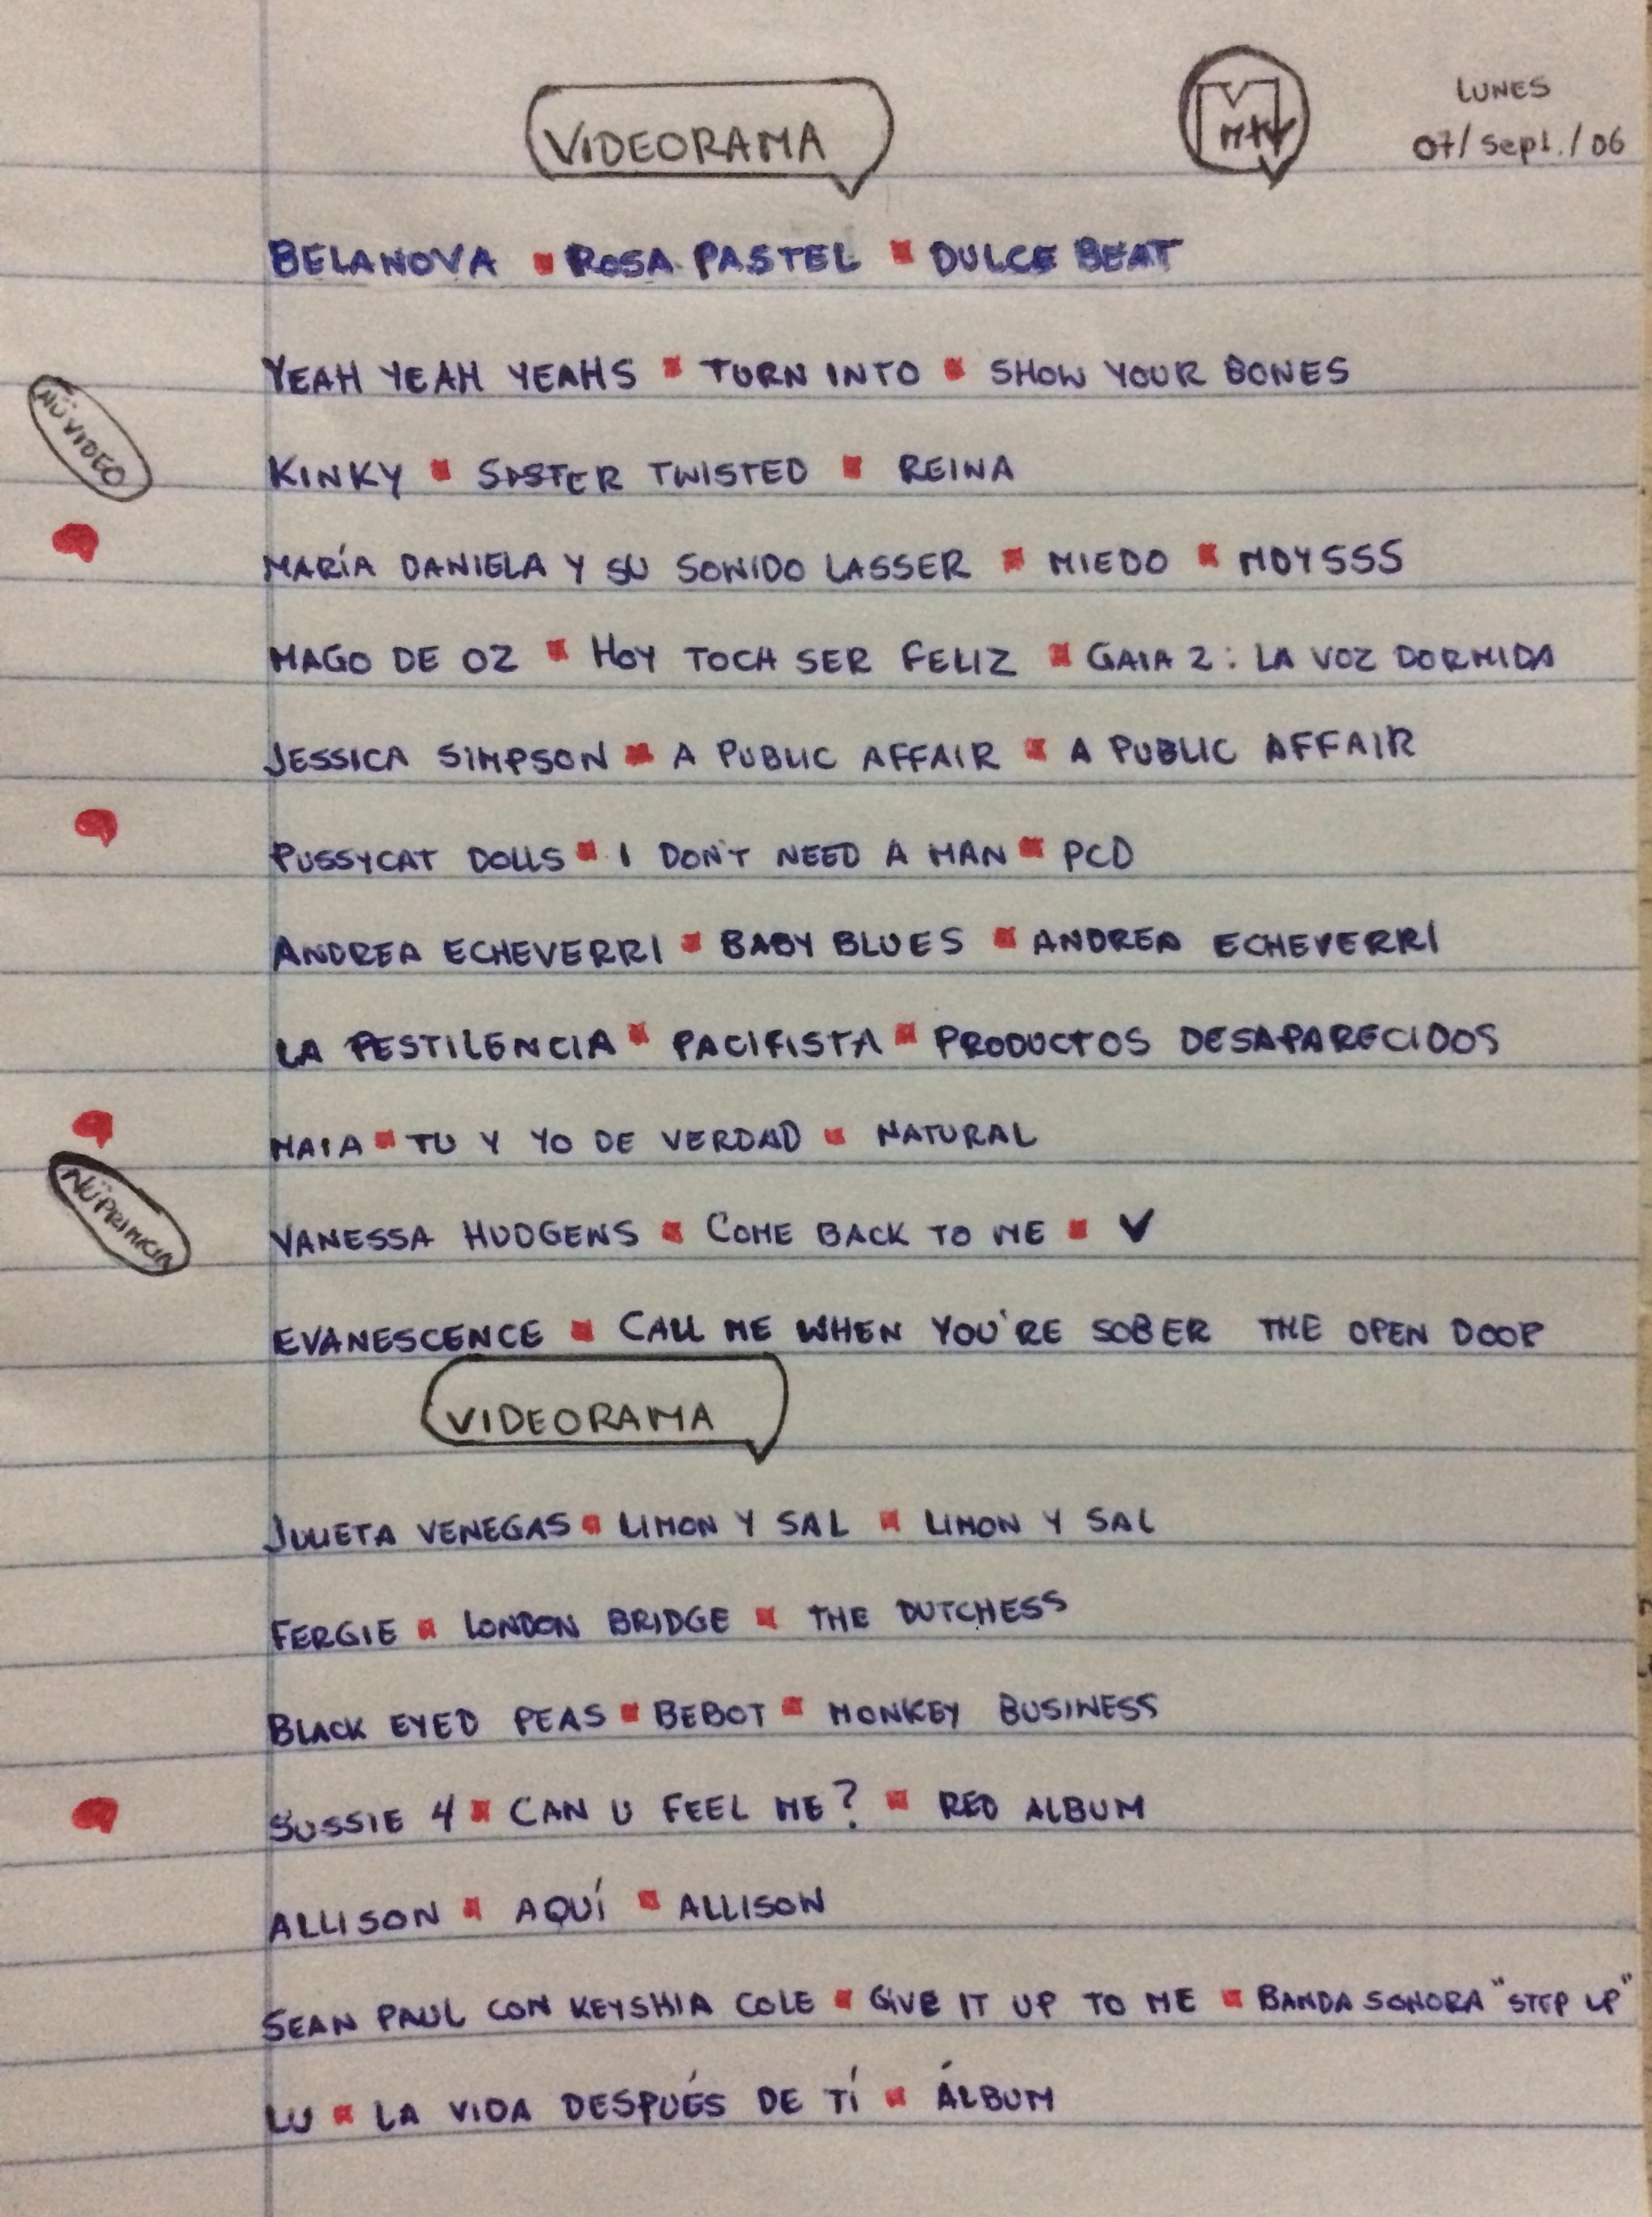 VIDEORAMA
MTV
LUNES
07/sept./06
BELANOVA ▪ ROSA PASTEL ▪ DULCE BEAT
YEAH YEAH YEAHS ▪ TURN INTO ▪ SHOW YOUR BONES
NÜVIDEO
KINKY ▪ SISTER TWISTED ▪ REINA
MARÍA DANIELA Y SU SONIDO LASSER ▪ MIEDO ▪ MDYSSS
MAGO DE OZ ▪ HOY TOCA SER FELIZ ▪ GAIA 2: LA VOZ DORMIDA
JESSICA SIMPSON ▪ A PUBLIC AFFAIR ▪ A PUBLIC AFFAIR
PUSSYCAT DOLLS ▪ I DON'T NEED A MAN ▪ PCD
ANDREA ECHEVERRI ▪ BABY BLUES ▪ ANDREA ECHEVERRI
LA PESTILENCIA ▪ PACIFISTA ▪ PRODUCTOS DESAPARECIDOS
MAIA ▪ TU Y YO DE VERDAD ▪ NATURAL
NÜPRIMICIA
VANESSA HUDGENS ▪ COME BACK TO ME ▪ V
EVANESCENCE ▪ CALL ME WHEN YOU'RE SOBER THE OPEN DOOR
VIDEORAMA
JULIETA VENEGAS ▪ LIMON Y SAL ▪ LIMON Y SAL
FERGIE ▪ LONDON BRIDGE ▪ THE DUTCHESS
BLACK EYED PEAS ▪ BEBOT ▪ MONKEY BUSINESS
SUSSIE 4 ▪ CAN U FEEL ME? ▪ RED ALBUM
ALLISON ▪ AQUÍ ▪ ALLISON
SEAN PAUL CON KEYSHIA COLE ▪ GIVE IT UP TO ME ▪ BANDA SONORA "STEP UP"
LU ▪ LA VIDA DESPUÉS DE TÍ ▪ ÁLBUM